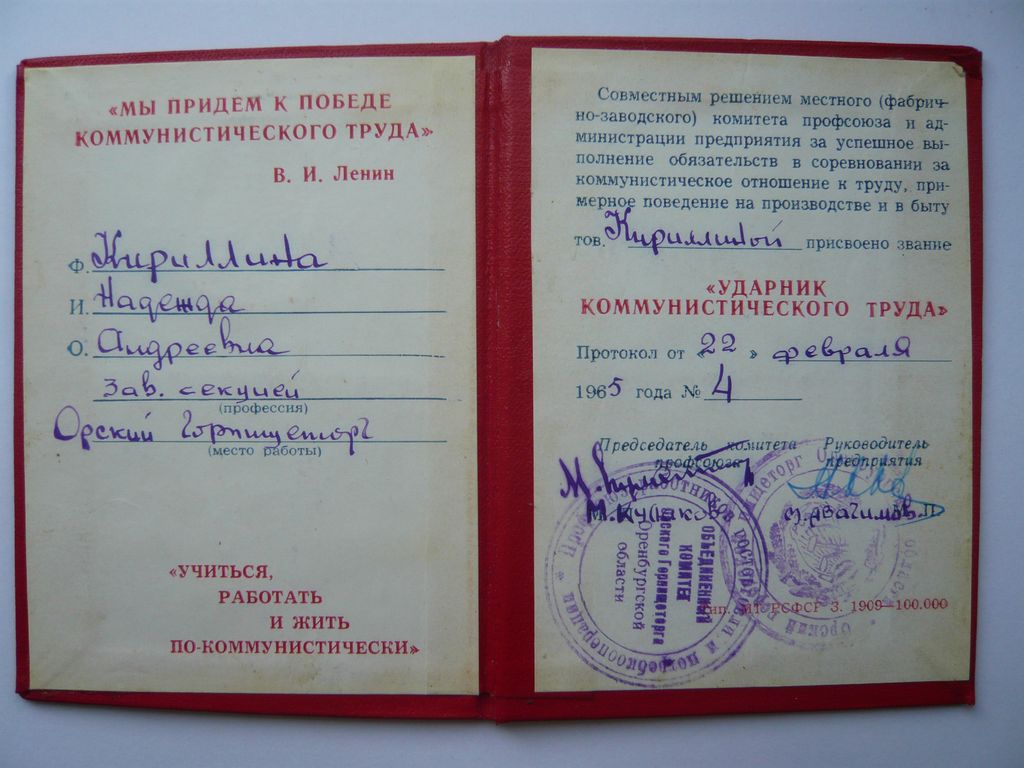 «МЫ ПРИДЕМ К ПОБЕДЕ
КОММУНИСТИЧЕСКОГО ТРУДА»
В. И. Ленин
Ф. Кириллина
И. Надежда
О. Андреевна
Зав. секцией
(профессия)
Орский Горпищеторг
(место работы)
«УЧИТЬСЯ,
РАБОТАТЬ
И ЖИТЬ
ПО-КОММУНИСТИЧЕСКИ»
Совместным решением местного (фабрич-
но-заводского) комитета профсоюза и ад-
министрации предприятия за успешное вы-
полнение обязательств в соревновании за
коммунистическое отношение к труду, при-
мерное поведение на производстве и в быту
тов. Кириллиной присвоено звание
«УДАРНИК
КОММУНИСТИЧЕСКОГО ТРУДА»
Протокол от «22 » февраля
1965 года № 4
Председатель комитета
профсоюза
Руководитель
предприятия
ОБЪЕДИНЕННЫЙ
КОМИТЕТ
Орского Горпищеторга
Оренбургской
области
Тип. МТ РСФСР З. 1909—100.000